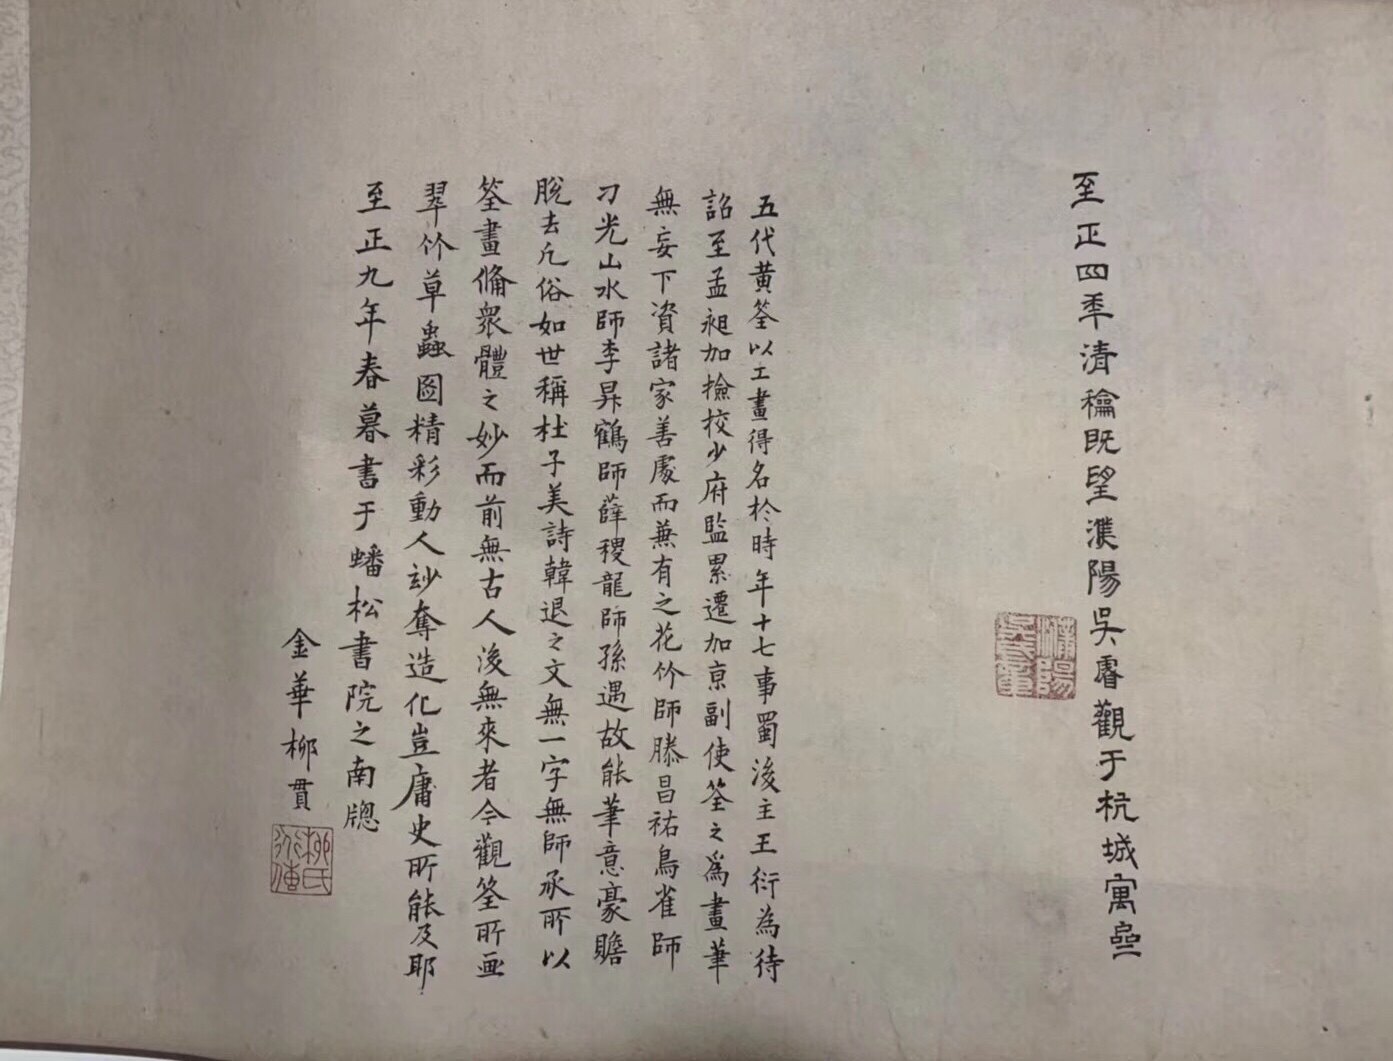 至正四年清龢既望濮陽吳睿觀于杭城寓壺
濮陽
五代黄筌以工畫得名於時年十七事蜀後主王衍為待
詔至孟昶加撿挍少府監累遷加京副使筌之為畫筆
無妄下資諸家善處而兼有之花竹師滕昌祐鳥雀師
刁光山水師李昇鶴師薛稷龍師孫遇故能筆意豪贍
脫去凡俗如世稱杜子美詩韓退之文無一字無師承所以
筌畫俻衆體之妙而前無古人後無來者今觀筌所画
翠竹草蟲圖精彩動人玅奪造化豈庸史所能及耶
至正九年春暮書于蟠松書院之南牕
金華柳貫
柳氏道傳